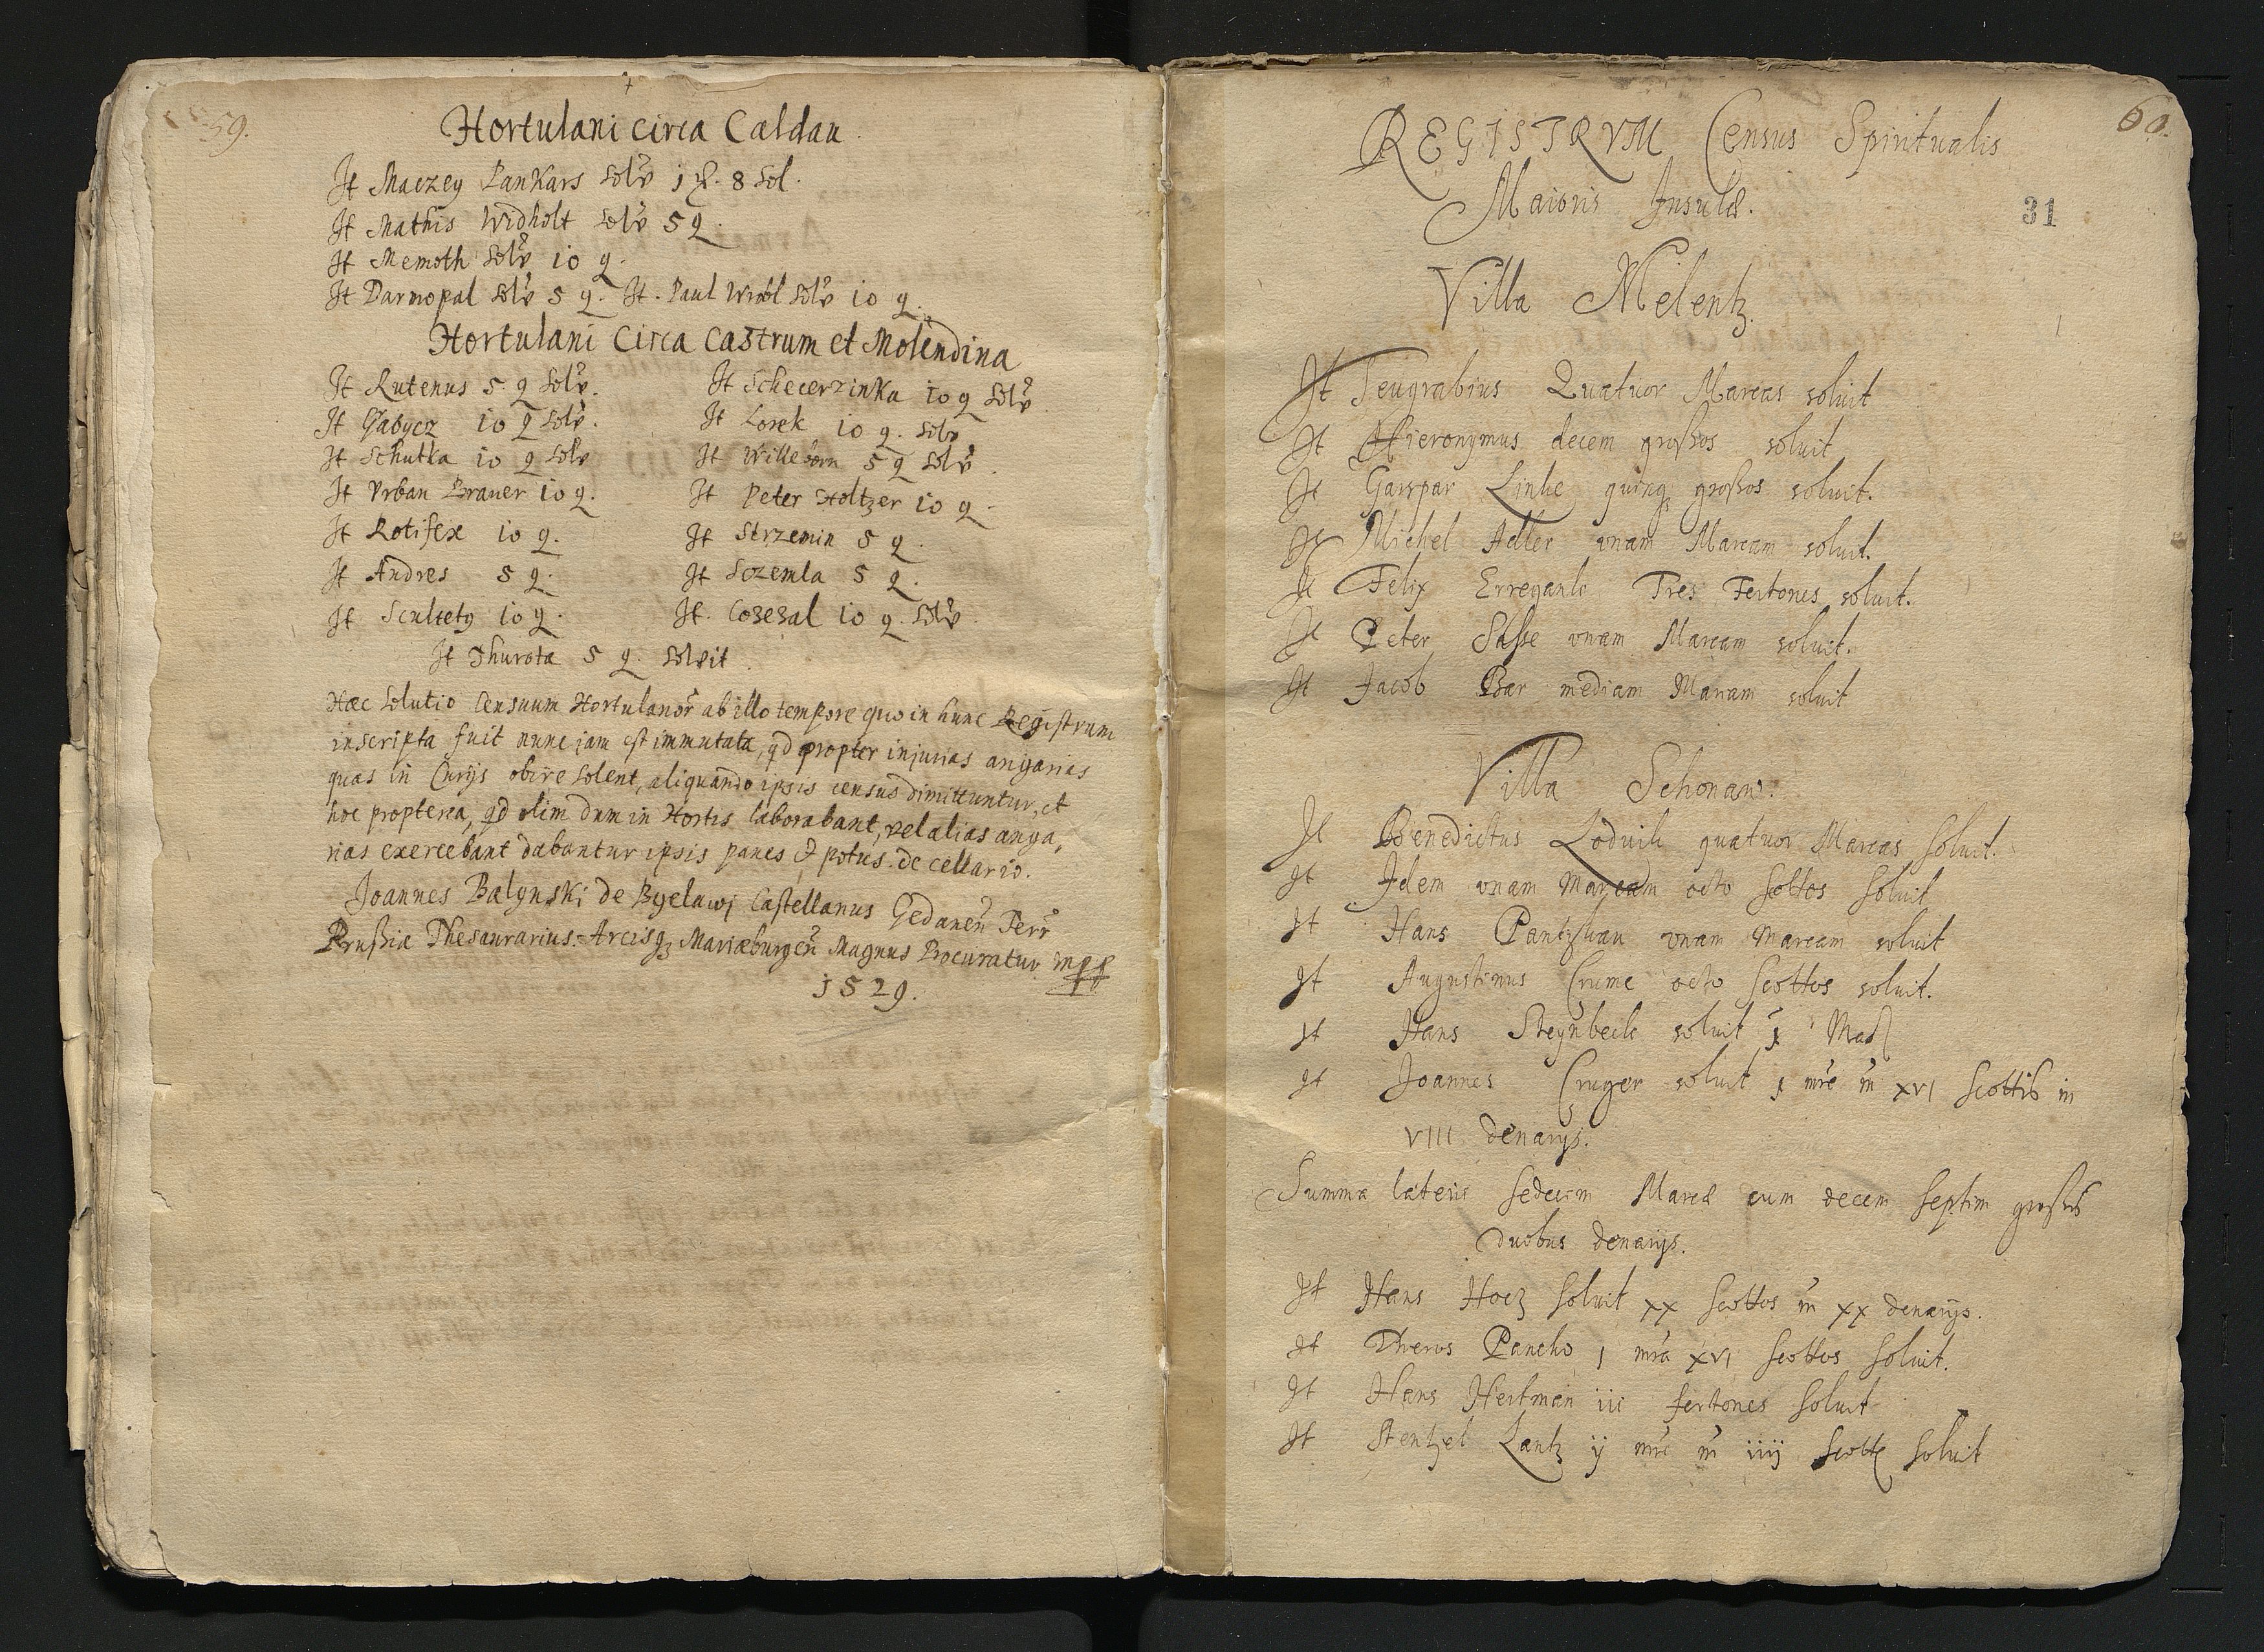 59.
Hortulani circa Caldau.
It Maczey Pankars solv 1 8 sol.
It Mathis Widholt solv 5 q.
It Memoth solv 10 q.
It Darmopal solv 5 q. It. Paul Wrobl solv 10 q.
Hortulani Circa Castrum et Molendina
It Rutenus 5 q solv.
It Gabycz 10 q solv.
It Schutka 10 q solv
It Vrban Brauer 10 q.
It Rotifex 10 q.
It Andres 5 q.
It Scultety 10 q.
It Schecerzinka 10 q solv
It Lorek 10 q. solv
It Willeborn 5 q solv.
It Peter Holtzer 10 q.
It Strzemin 5 q.
It Sczemla 5 q.
It. Cosesal 10 q. solv.
It Thurota 5 q. solvit.
Hæc solutio Censuum Hortulanor ab illo tempore quo in hunc Registrum
inscripta fuit nunc jam est immutata, qd propter injurias angarias
quas in Curijs obire solent, aliquando ipsis census dimittuntur, et
hoc propterea, qd olim dum in Hortis laborabant, vel alias anga,
rias exercebant dabantur ipsis panes et potus de cellario.
Joannes Balynski de Byelawj Castellanus Gedanen Terr
Prußiæ Thesaurarius. Arcisq Mariæburgen Magnus Procurator mpp
1529.
60.
31
REGISTRVM Census Spiritualis
Maioris Insulæ.
Villa Melentz.
It Teugrabius Quatuor Marcas soluit
It Hieronymus decem großos soluit
It Gaspar Linke quinq großos soluit.
It Michel Adler vnam Marcam soluit.
It Felix Erregank Tres Fertones soluit.
It Peter Sasse vnam Marcam soluit.
It Jacob Bar mediam Marcam soluit
Villa Schonaw.
It Benedictus Lodwik quatuor Marcas soluit.
It Idem vnam Marcam octo scottos soluit
It Hans Pantzlvau vnam marcam soluit
It Augustinus Crume octo scottos soluit.
It Hans Steynbeck soluit 1 Mar
It Joannes Cruger soluit 1 mre m XVI scottis in
VIII denarijs.
Summa lateris sedecim Marcæ cum decem septim großis
duobus denarijs.
It Hans Hocz soluit xx scottos m xx denarijs.
It Drews Pancko 1 mra xvi scottos soluit.
It Hans Hertman iii fertones soluit
It Stentzel Lantz ij mre m iiij scott soluit